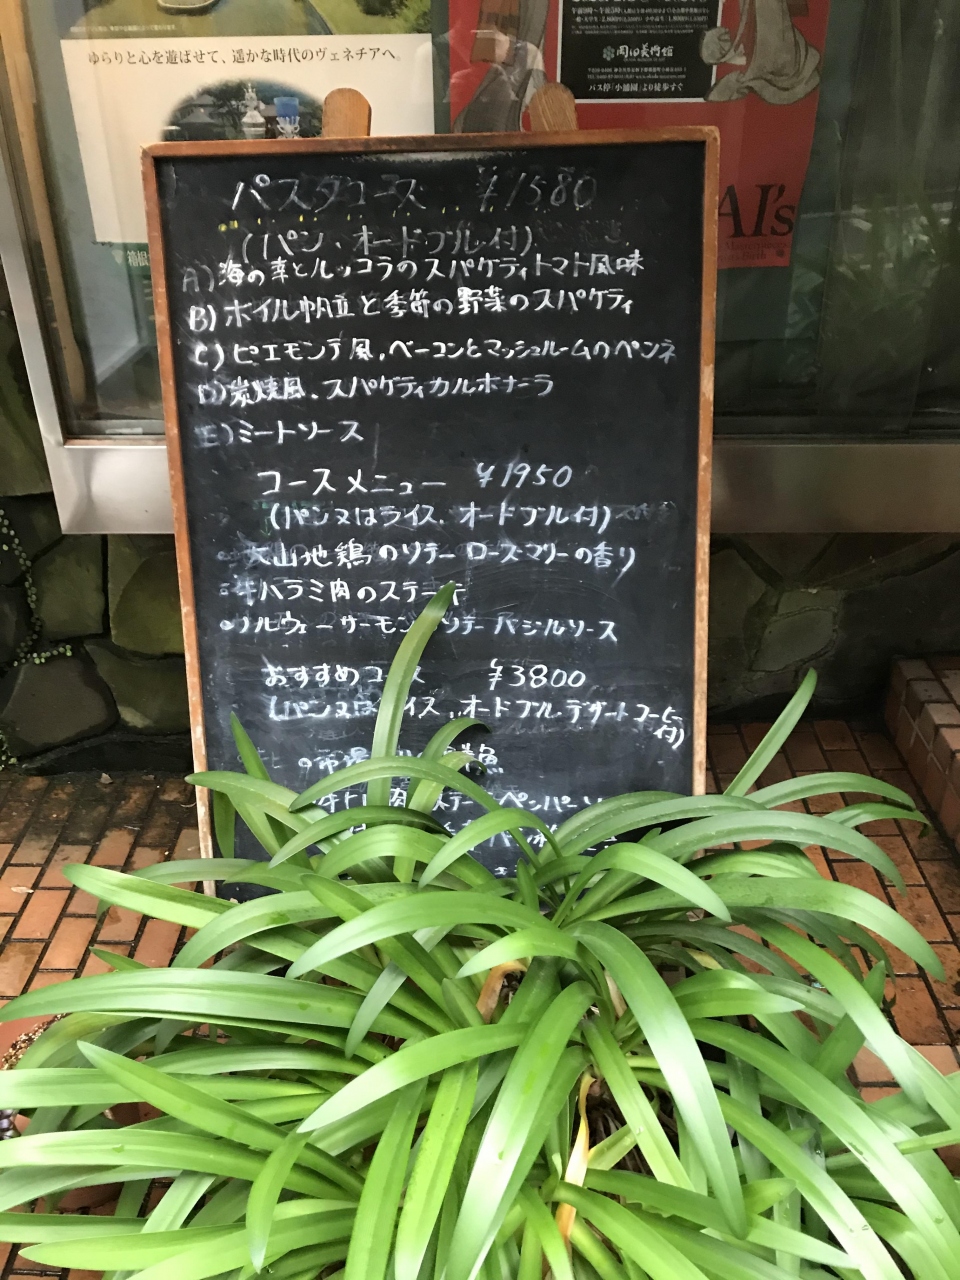 ゆらりと心を遊ばせて、遥かな時代のヴェネチアへ。
岡田美術館
バス停「小涌園」より徒歩すぐ
AI's
箱根
パスタコース ¥1580
(パン・オードブル付)
A)海の幸とルッコラのスパゲティトマト風味
B)ボイル帆立と季節の野菜のスパゲティ
C)ピエモンテ風,ベーコンとマッシュルームのペンネ
D)炭焼風.スパゲティカルボナーラ
E)ミートソース
コースメニュー ¥1950
(パン又はライス.オードブル付)
大山地鶏のソテー ローズマリーの香り
牛ハラミ肉のステーキ
ノルウェーサーモン ソテー バジルソース
おすすめコース ¥3800
(パン又はライス.オードブル.デザートコーヒー
付)
市場 鮮魚
牛 肉 ステー ペッパーソ